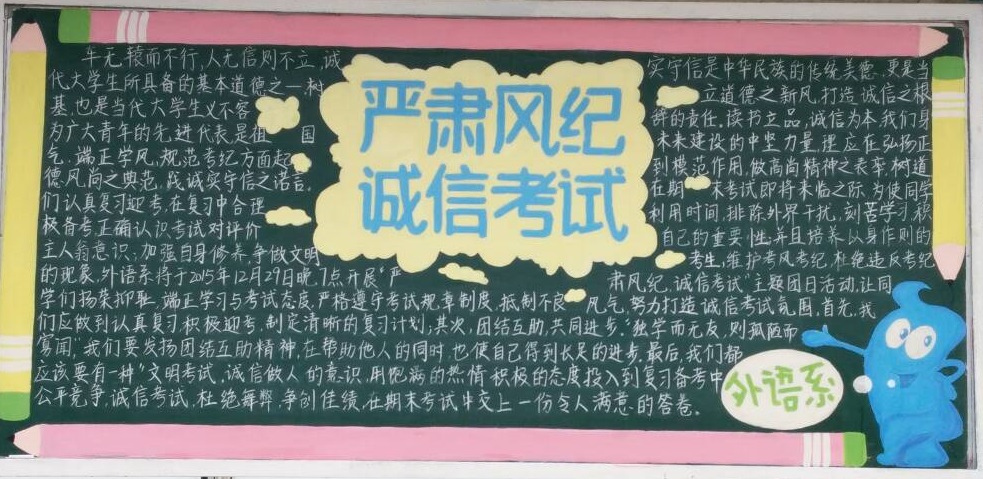 严肃风纪
诚信考试
车无辕而不行,人无信则不立,诚实守信是中华民族的传统美德,更是当
代大学生所具备的基本道德之一树立道德之新风,打造诚信之根
基,也是当代大学生义不容辞的责任。读书立品,诚信为本我们身
为广大青年的先进代表,是祖国未来建设的中坚力量,理应在弘扬正
气,端正学风,规范考纪方面起到模范作用,做高尚精神之表率,树道
德风尚之典范,践诚实守信之诺言。在期末考试即将来临之际,为使同学
们认真复习迎考,在复习中合理利用时间,排除外界干扰,刻苦学习,积
极备考正确认识考试对评价自己的重要性,并且培养以身作则的
主人翁意识;加强自身修养,争做文明考生,维护考风考纪,杜绝违反考纪
的现象,外语系将于2015年12月29日晚7点开展"严肃风纪,诚信考试"主题团日活动,让同
学们扬荣抑耻,端正学习与考试态度,严格遵守考试规章制度,抵制不良风气,努力打造诚信考试氛围,首先,我
们应做到认真复习积极迎考,制定清晰的复习计划;其次,团结互助,共同进步,"独学而无友,则孤陋而
寡闻"我们要发扬团结互助精神,在帮助他人的同时,也使自己得到长足的进步,最后,我们都
应该要有一种"文明考试,诚信做人的意识,用饱满的热情积极的态度投入到复习备考中
公平竞争,诚信考试,杜绝舞弊,争创佳绩,在期末考试中交上一份令人满意的答卷。
外语系